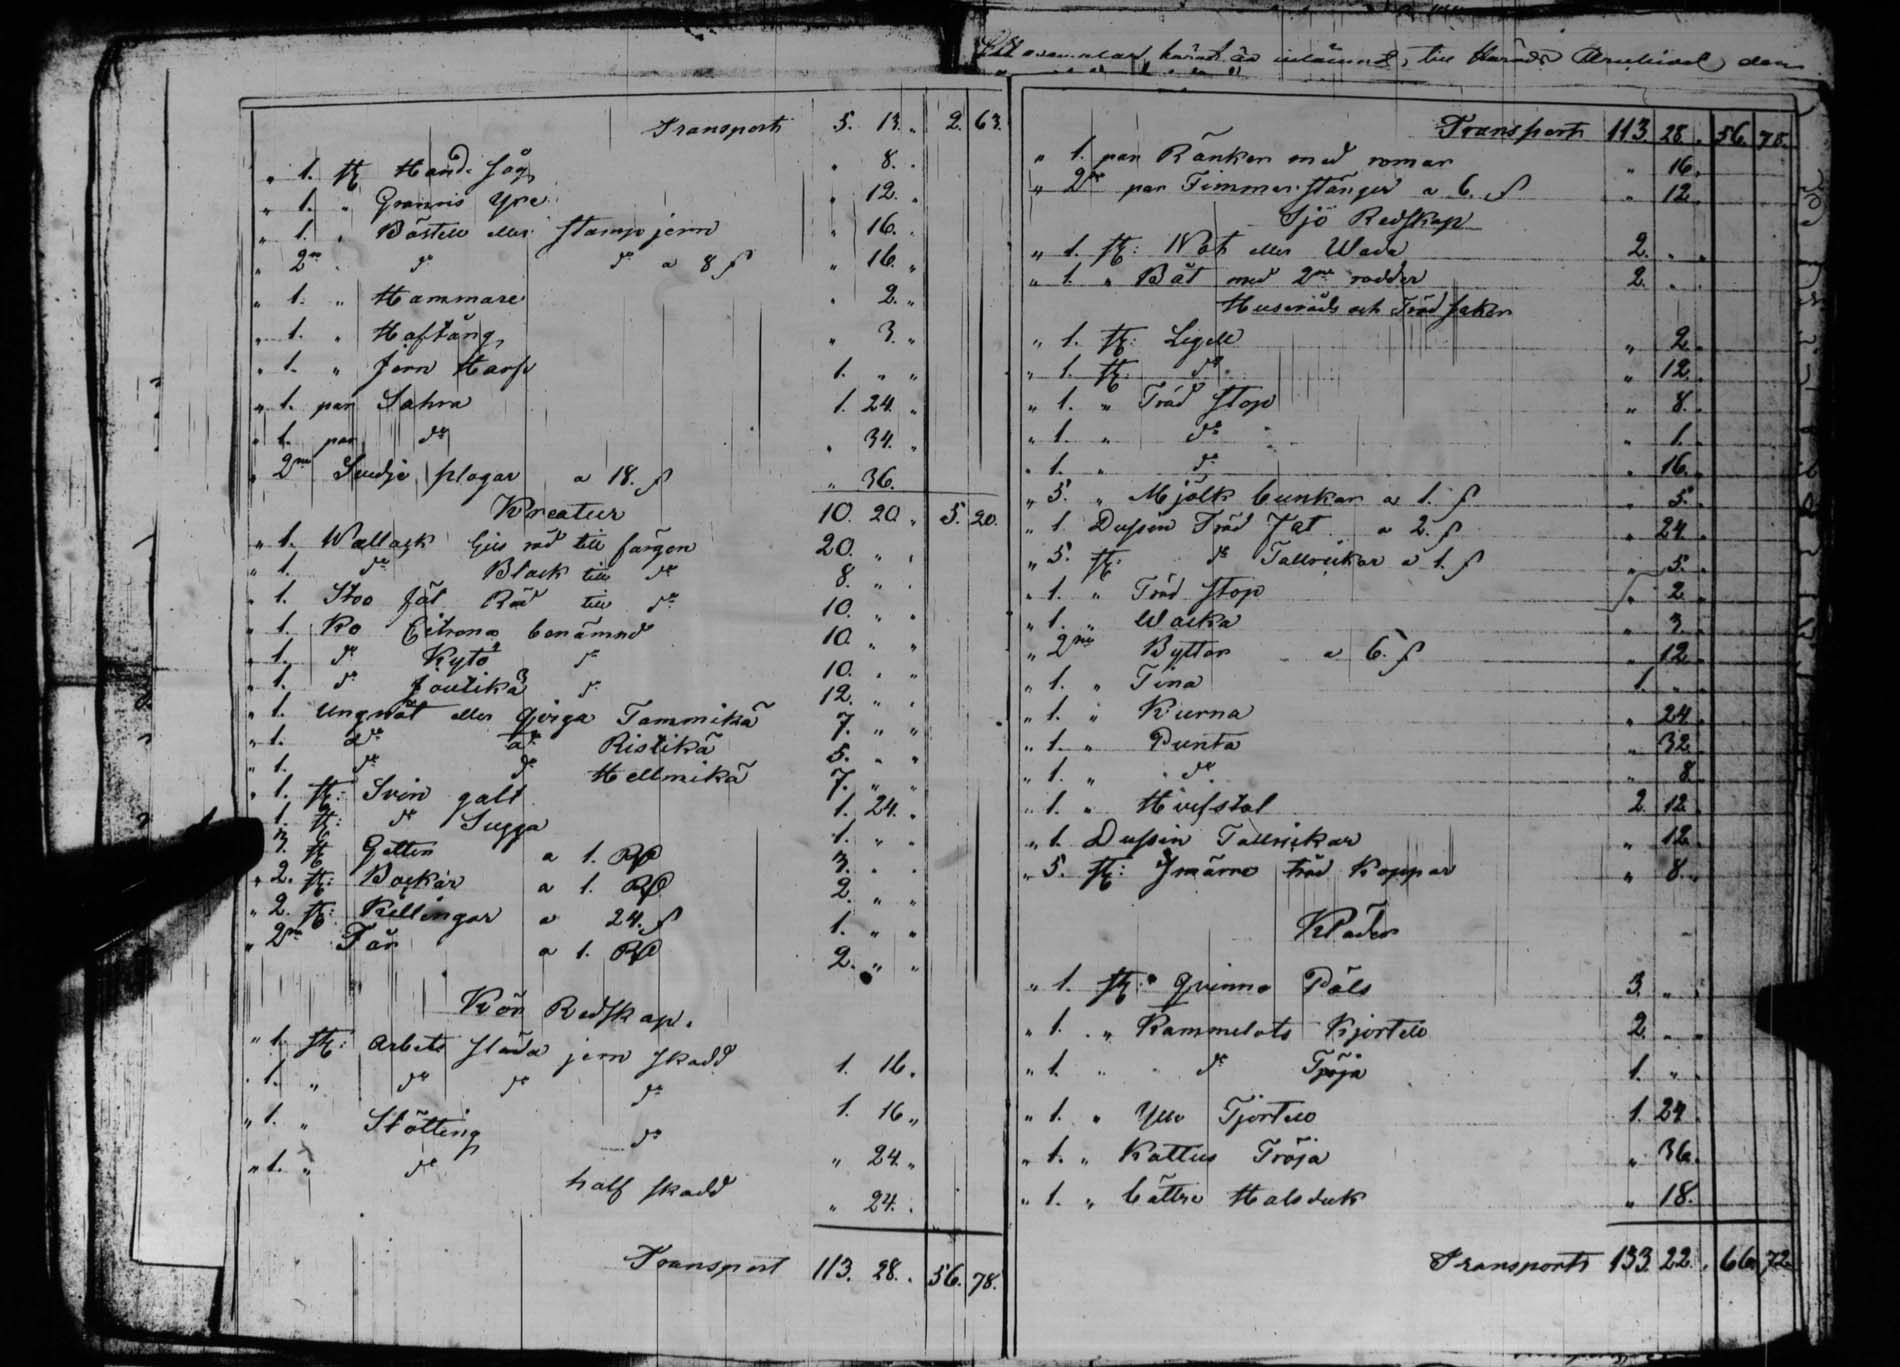 Transport 5. 13. „ 2. 63.
„ 1. st Hand såg „ 8. „
„ 1. „ Yxe „ 12. „
„ 1. „ eller stamp jern „ 16. „
„ 2ne „ do do a 8 s „ 16. „
„ 1. „ Hammare „ 2. „
„ 1. „ Hoftång „ 3. „
„ 1. „ Jern Harf 1. „ „
„ 1. par Sahra 1. 24. „
„ 1. par do „ 34. „
„ 2ne Svedje plogar a 18. s „ 36.
Kreatur 10. 20. „ 5. 20.
„ 1. Wallack röd till färgen 20. „ „
„ 1. do Black till do 8. „ „
„ 1. Stoo föl Röd till do 10. „ „
„ 1. Ko Citrona benämnd 10. „ „
„ 1. do Kytö do 10. „ „
„ 1. do Joulikä do 12. „ „
„ 1. Ungnöt eller Qviga Tammikä 7. „ „
„ 1. do do Ristikä 5. „ „
„ 1. do do Hellmikä 7. „ „
„ 1. st: Svin galt 1. 24. „
„ 1. st: do Sugga 1. „ „
„ 3. st Getter a 1. Rd 3. „ „
„ 2. st: Bockar a 1. Rd 2. „ „
„ 2. st: Killingar a 24. s 1. „ „
„ 2ne Får a 1. Rd 2. „ „
Kör Redskap.
„ 1. st: Arbets släda jern skodd 1. 16.
„ 1. „ do do do 1. 16 „
„ 1. „ Stötting do „ 24. „
„ 1. „ do half skodd „ 24. „
Transport 113. 28. „ 56. 78.
till Härads Archivet den
Transport 113. 28. „ 56. 78.
„ 1. par Ränkor med romar „ 16.
„ 2ne par Timmer stänger a 6. s „ 12
Sjö Redskap
„ 1. st: Not eller Wada 2. „ „
„ 1. „ Båt med 2ne rodder 2. „
Husgeråds och Träd saker
„ 1. st: Legell „ 2 „
„ 1. st: do „ 12. „
„ 1. „ Träd stop „ 8. „
„ 1. „ do „ 1. „
„ 1. „ do „ 16. „
„ 5. „ Mjölk bunkar a 1. s „ 5. „
„ 1. Dussin Träd fat a 2. s „ 24 „
„ 5. st: do Tallrickar a 1. s „ 5. „
„ 1. „ Träd stop „ 2 „
„ 1. „ Wacka „ 3. „
„ 2ne Byttor a 6. s „ 12 „
„ 1. „ Tina 1. „ „
„ 1. „ Kurna „ 24 „
„ 1. „ Punta „ 32 „
„ 1. „ do „ 8
„ 1. „ 2 12
„ 1. Dussin Tallrickar „ 12.
„ 5. st: Smärre träd Koppar „ 8. „
Kläder
„ 1. st: Qvinno Päls 3. „ „
„ 1. „ Kammelots Kjortell 2. „ „
„ 1. „ do Tröja 1. „
„ 1. „ Ylle Tjortell 1. 24
„ 1. „ Kattus Tröja „ 36.
„ 1. „ bättre Halsduk „ 18.
Transport 133. 22. „ 66. 72